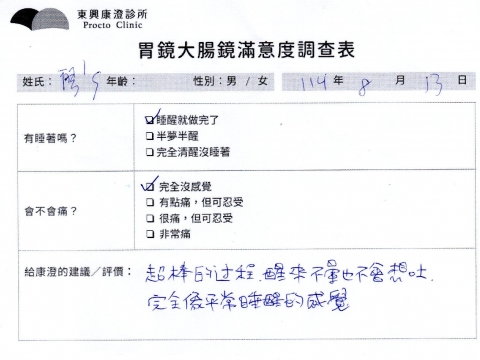 東興康澄診所
Procto Clinic
胃鏡大腸鏡滿意度調查表
姓氏： 年齡： 性別：男 / 女 114 年 8 月 13 日
有睡著嗎？
☑ 睡醒就做完了
☐ 半夢半醒
☐ 完全清醒沒睡著
會不會痛？
☑ 完全沒感覺
☐ 有點痛，但可忍受
☐ 很痛，但可忍受
☐ 非常痛
給康澄的建議／評價：
超棒的过程，醒來不暈也不會想吐，
完全像平常睡醒的感覺